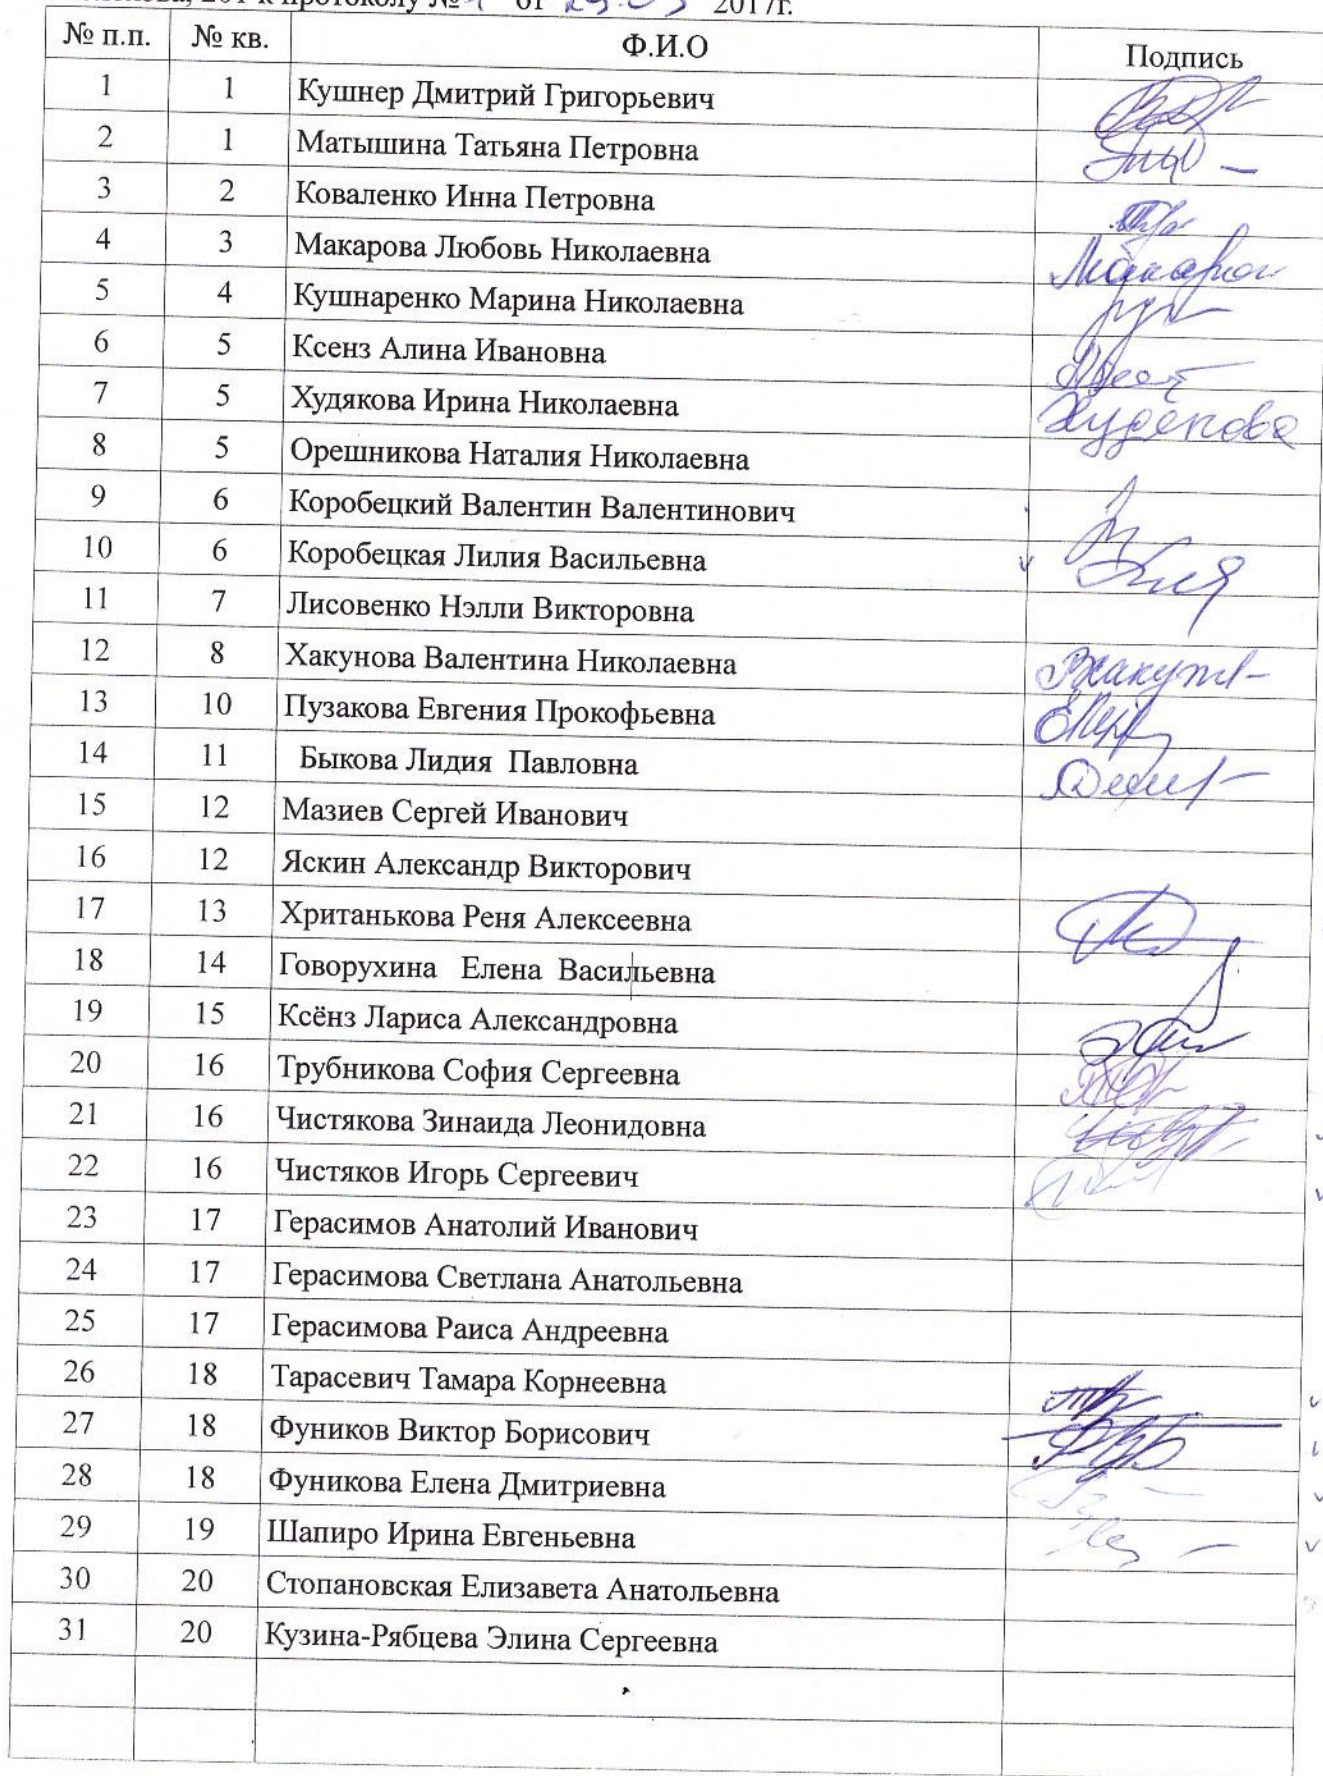 201 к протоколу № от 2017г.
№ п.п. № кв. Ф.И.О Подпись
1 1 Кушнер Дмитрий Григорьевич
2 1 Матышина Татьяна Петровна
3 2 Коваленко Инна Петровна
4 3 Макарова Любовь Николаевна
5 4 Кушнаренко Марина Николаевна
6 5 Ксенз Алина Ивановна
7 5 Худякова Ирина Николаевна Худякова
8 5 Орешникова Наталия Николаевна
9 6 Коробецкий Валентин Валентинович
10 6 Коробецкая Лилия Васильевна
11 7 Лисовенко Нэлли Викторовна
12 8 Хакунова Валентина Николаевна
13 10 Пузакова Евгения Прокофьевна
14 11 Быкова Лидия Павловна
15 12 Мазиев Сергей Иванович
16 12 Яскин Александр Викторович
17 13 Хританькова Реня Алексеевна
18 14 Говорухина Елена Васильевна
19 15 Ксёнз Лариса Александровна
20 16 Трубникова София Сергеевна
21 16 Чистякова Зинаида Леонидовна
22 16 Чистяков Игорь Сергеевич
23 17 Герасимов Анатолий Иванович
24 17 Герасимова Светлана Анатольевна
25 17 Герасимова Раиса Андреевна
26 18 Тарасевич Тамара Корнеевна
27 18 Фуников Виктор Борисович
28 18 Фуникова Елена Дмитриевна
29 19 Шапиро Ирина Евгеньевна
30 20 Стопановская Елизавета Анатольевна
31 20 Кузина-Рябцева Элина Сергеевна